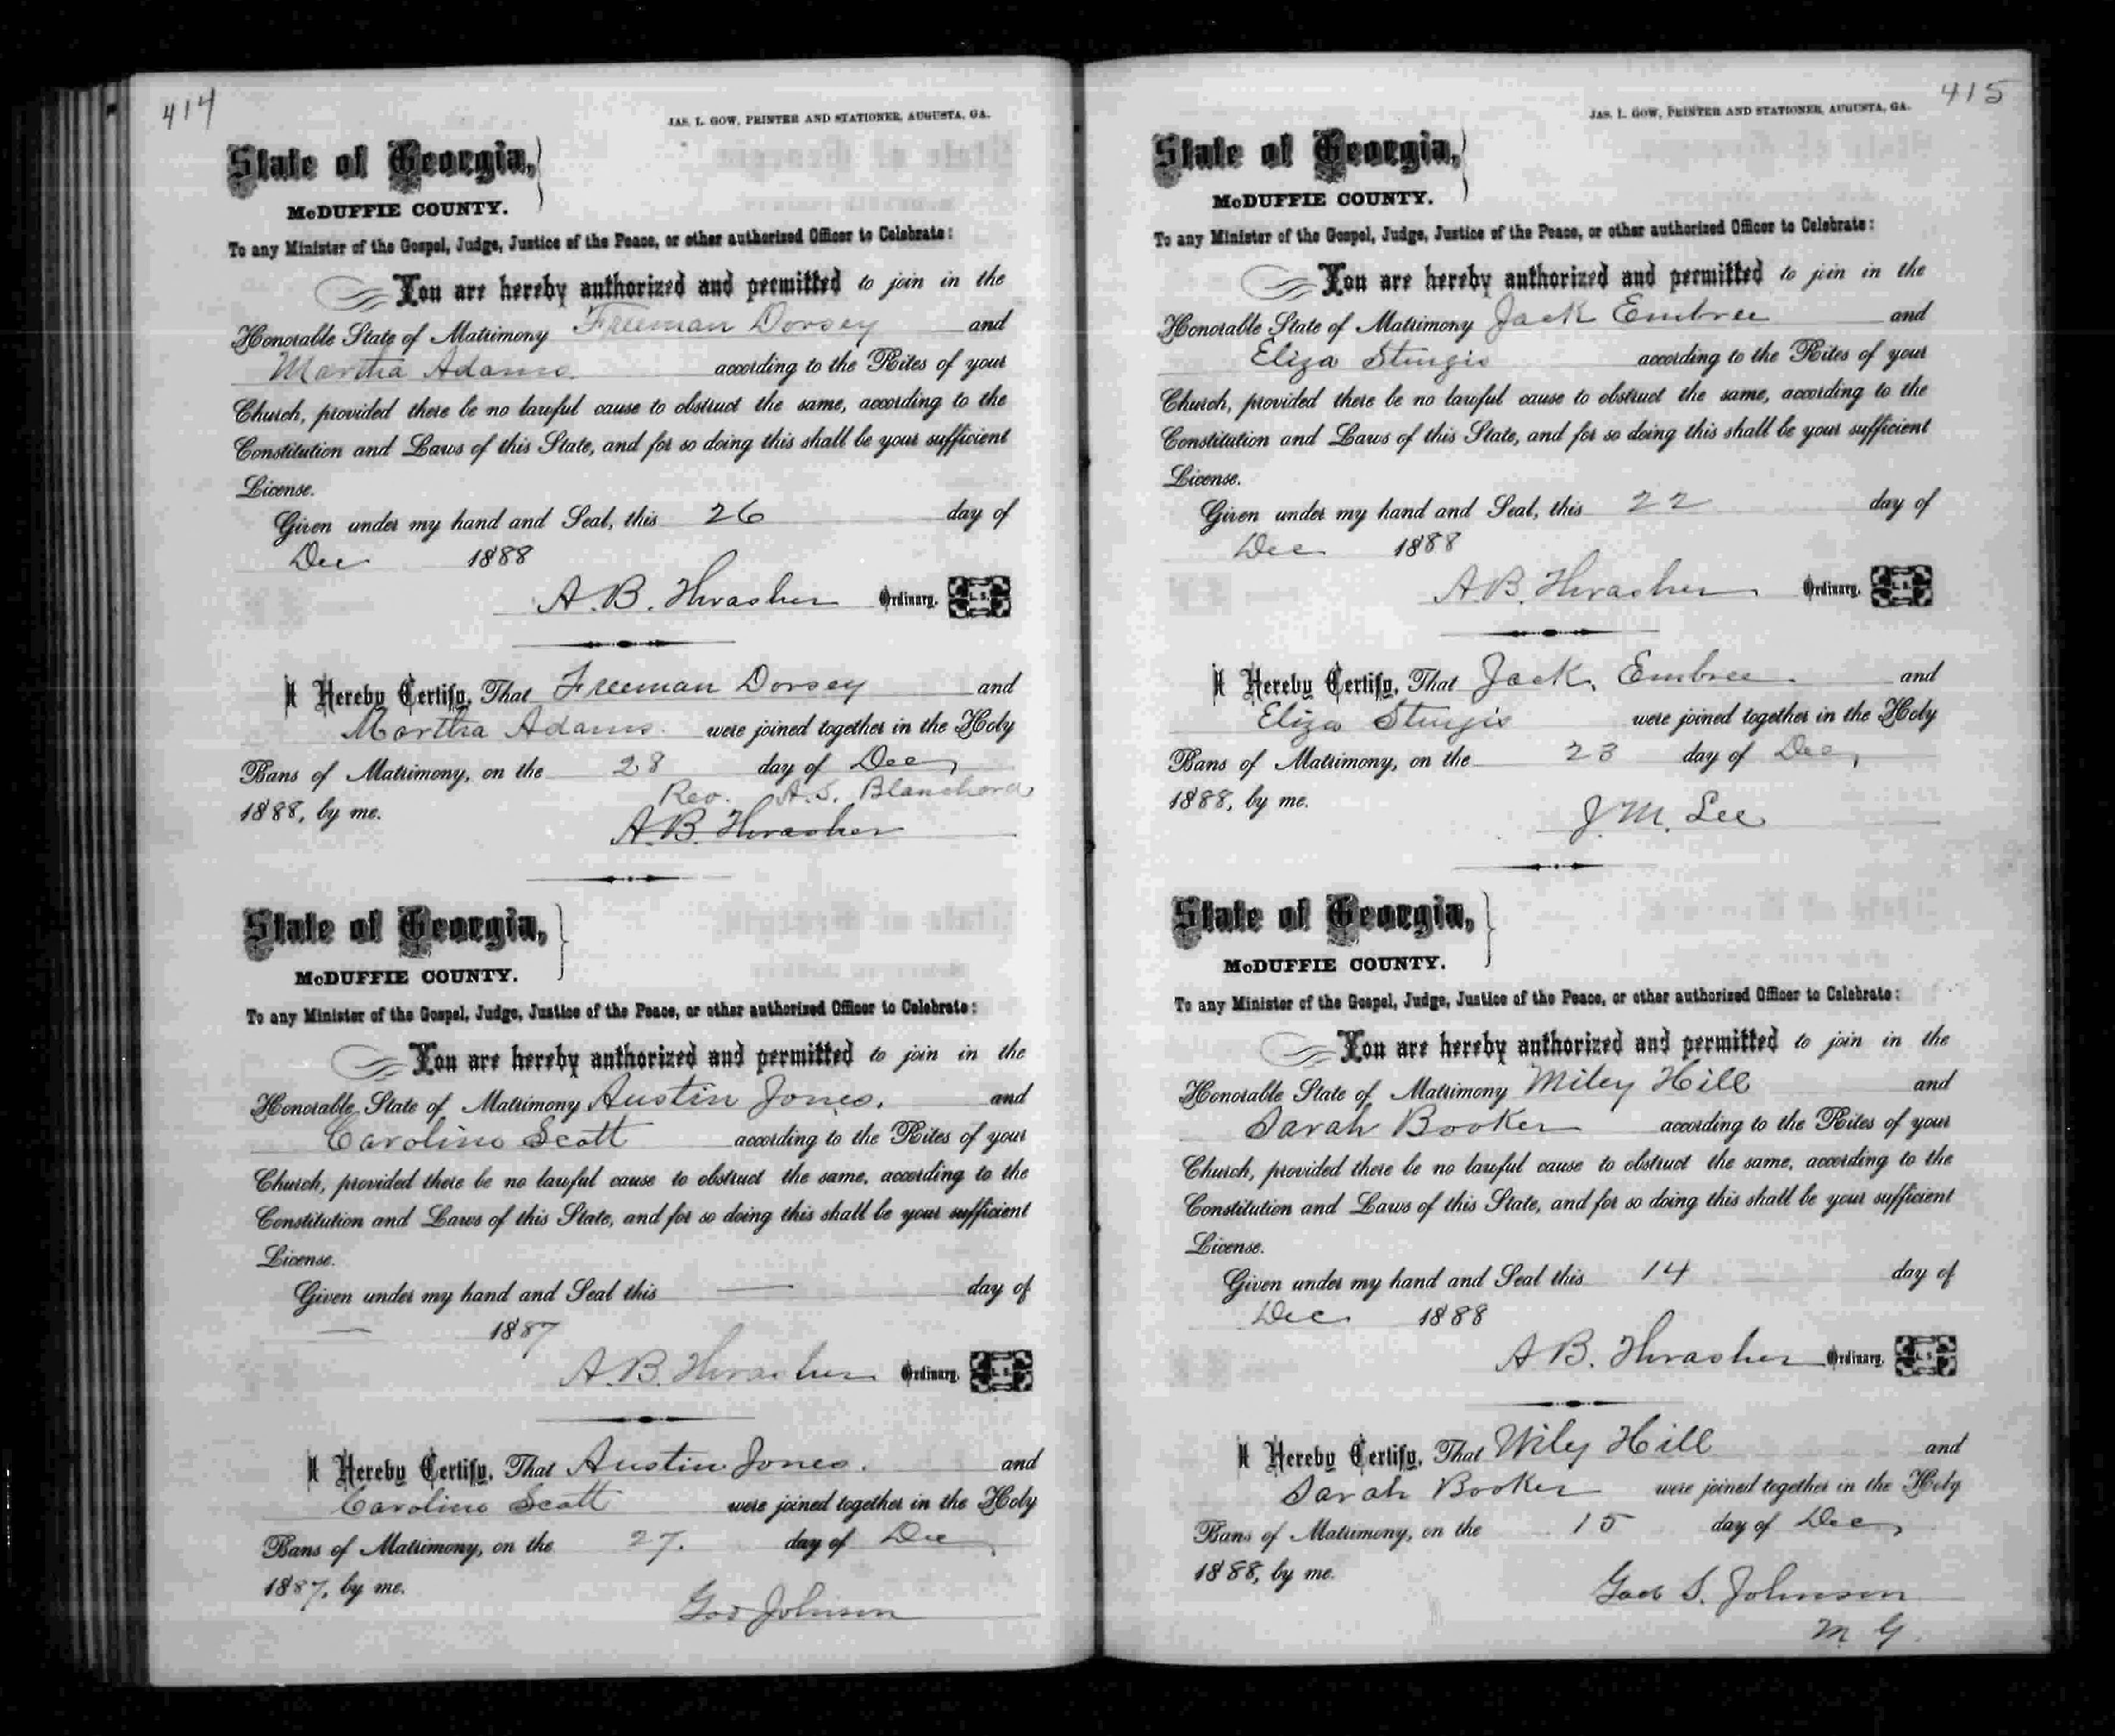 414
JAS. L. GOW, PRINTER AND STATIONER, AUGUSTA, GA.
State of Georgia,
McDUFFIE COUNTY.
To any Minister of the Gospel, Judge, Justice of the Peace, or other authorized Officer to Celebrate:
You are hereby authorized and permitted to join in the
Honorable State of Matrimony Freeman Dorsey and
Martha Adams according to the Rites of your
Church, provided there be no lawful cause to obstruct the same, according to the
Constitution and Laws of this State, and for so doing this shall be your sufficient
License.
Given under my hand and Seal, this 26 day of
Dec 1888
A.B. Thrasher Ordinary. L.S.
I Hereby Certify, That Freeman Dorsey and
Martha Adams were joined together in the Holy
Bans of Matrimony, on the 28 day of Dec,
Rev. A.S. Blanchard
1888, by me.
A.B. Thrasher
State of Georgia,
McDUFFIE COUNTY.
To any Minister of the Gospel, Judge, Justice of the Peace, or other authorized Officer to Celebrate:
You are hereby authorized and permitted to join in the
Honorable State of Matrimony Austin Jones. and
Caroline Scott according to the Rites of your
Church, provided there be no lawful cause to obstruct the same, according to the
Constitution and Laws of this State, and for so doing this shall be your sufficient
License.
Given under my hand and Seal this — day of
— 1887
A.B. Thrasher Ordinary. L.S.
I Hereby Certify, That Austin Jones. and
Caroline Scott were joined together in the Holy
Bans of Matrimony, on the 27. day of Dec,
1887, by me.
Johnson
415
JAS. L. GOW, PRINTER AND STATIONER, AUGUSTA, GA.
State of Georgia,
McDUFFIE COUNTY.
To any Minister of the Gospel, Judge, Justice of the Peace, or other authorized Officer to Celebrate:
You are hereby authorized and permitted to join in the
Honorable State of Matrimony Jack Embree and
Eliza Sturgis according to the Rites of your
Church, provided there be no lawful cause to obstruct the same, according to the
Constitution and Laws of this State, and for so doing this shall be your sufficient
License.
Given under my hand and Seal, this 22 day of
Dec 1888
A.B. Thrasher. Ordinary. L.S.
I Hereby Certify, That Jack Embree. and
Eliza Sturgis were joined together in the Holy
Bans of Matrimony, on the 23 day of Dec,
1888, by me.
J.M. Lee
State of Georgia,
McDUFFIE COUNTY.
To any Minister of the Gospel, Judge, Justice of the Peace, or other authorized Officer to Celebrate:
You are hereby authorized and permitted to join in the
Honorable State of Matrimony Miley Hill and
Sarah Booker according to the Rites of your
Church, provided there be no lawful cause to obstruct the same, according to the
Constitution and Laws of this State, and for so doing this shall be your sufficient
License.
Given under my hand and Seal this 14 day of
Dec. 1888
A.B. Thrasher Ordinary. L.S.
I Hereby Certify, That Wiley Hill and
Sarah Booker were joined together in the Holy
Bans of Matrimony, on the 15 day of Dec,
1888, by me.
S. Johnson
M G.